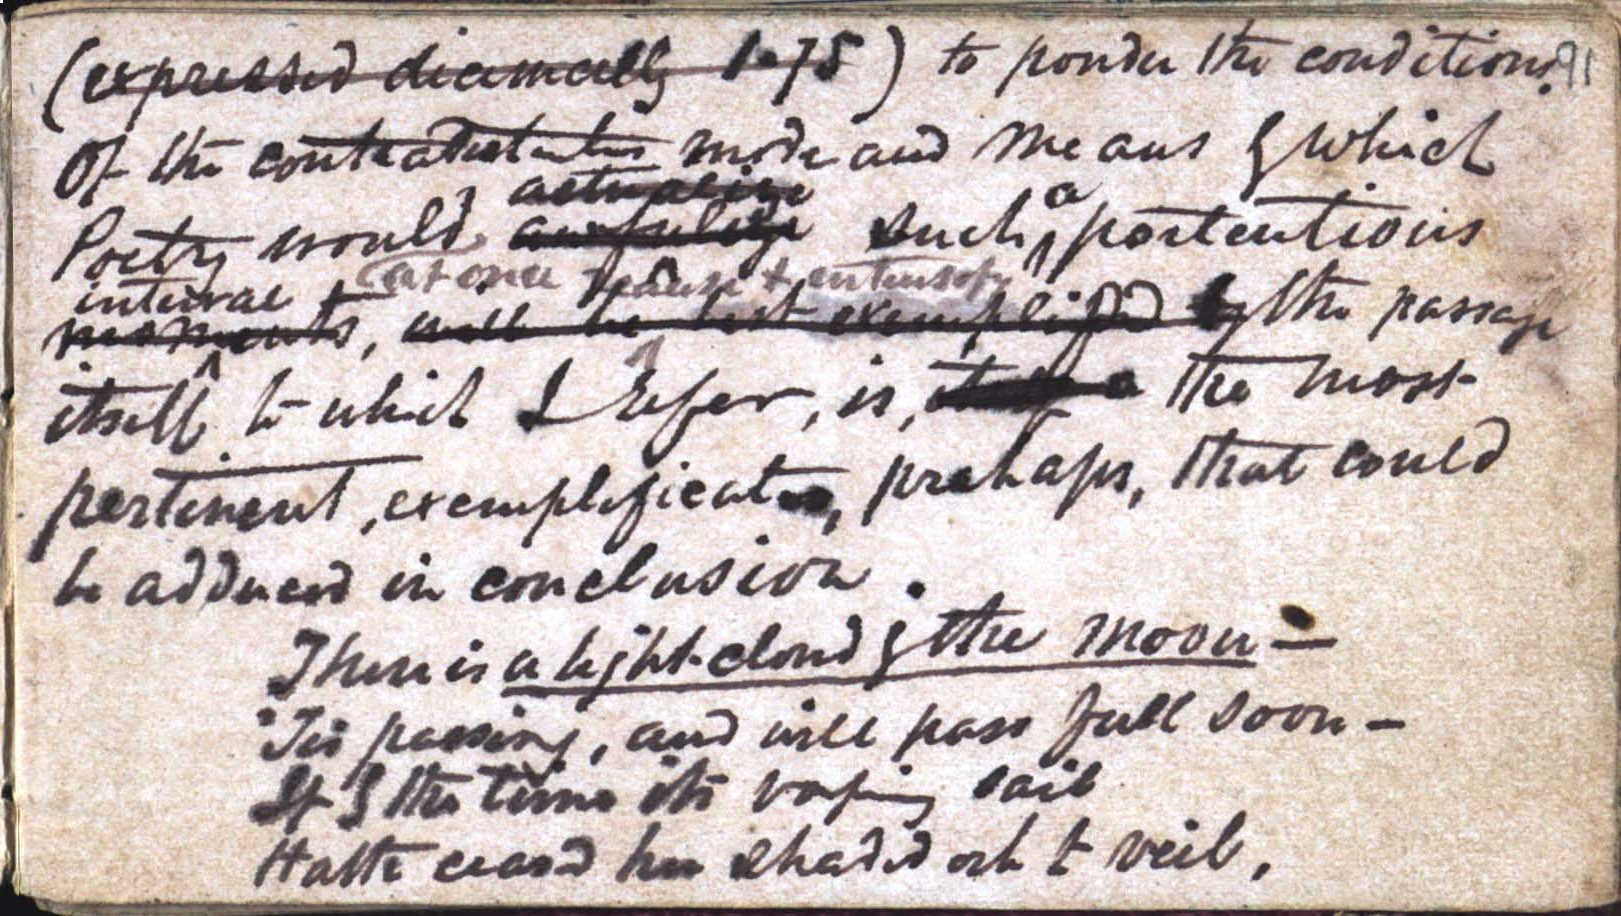 (expressed diamcally 1.75) to ponder the conditions 91
Of the mode and means & which
actualize
Poetry would such a portentious
interval (at once & intensify
moments, will be best exemplified by the passage
itself to which I refer, is, the most
pertinent, perhaps, that could
be adduced in conclusion.
There is a light cloud & the moon —
'Tis passing, and will pass full soon —
If & the time its vaping sail
Hathe ceasd her shaded orb t veil,